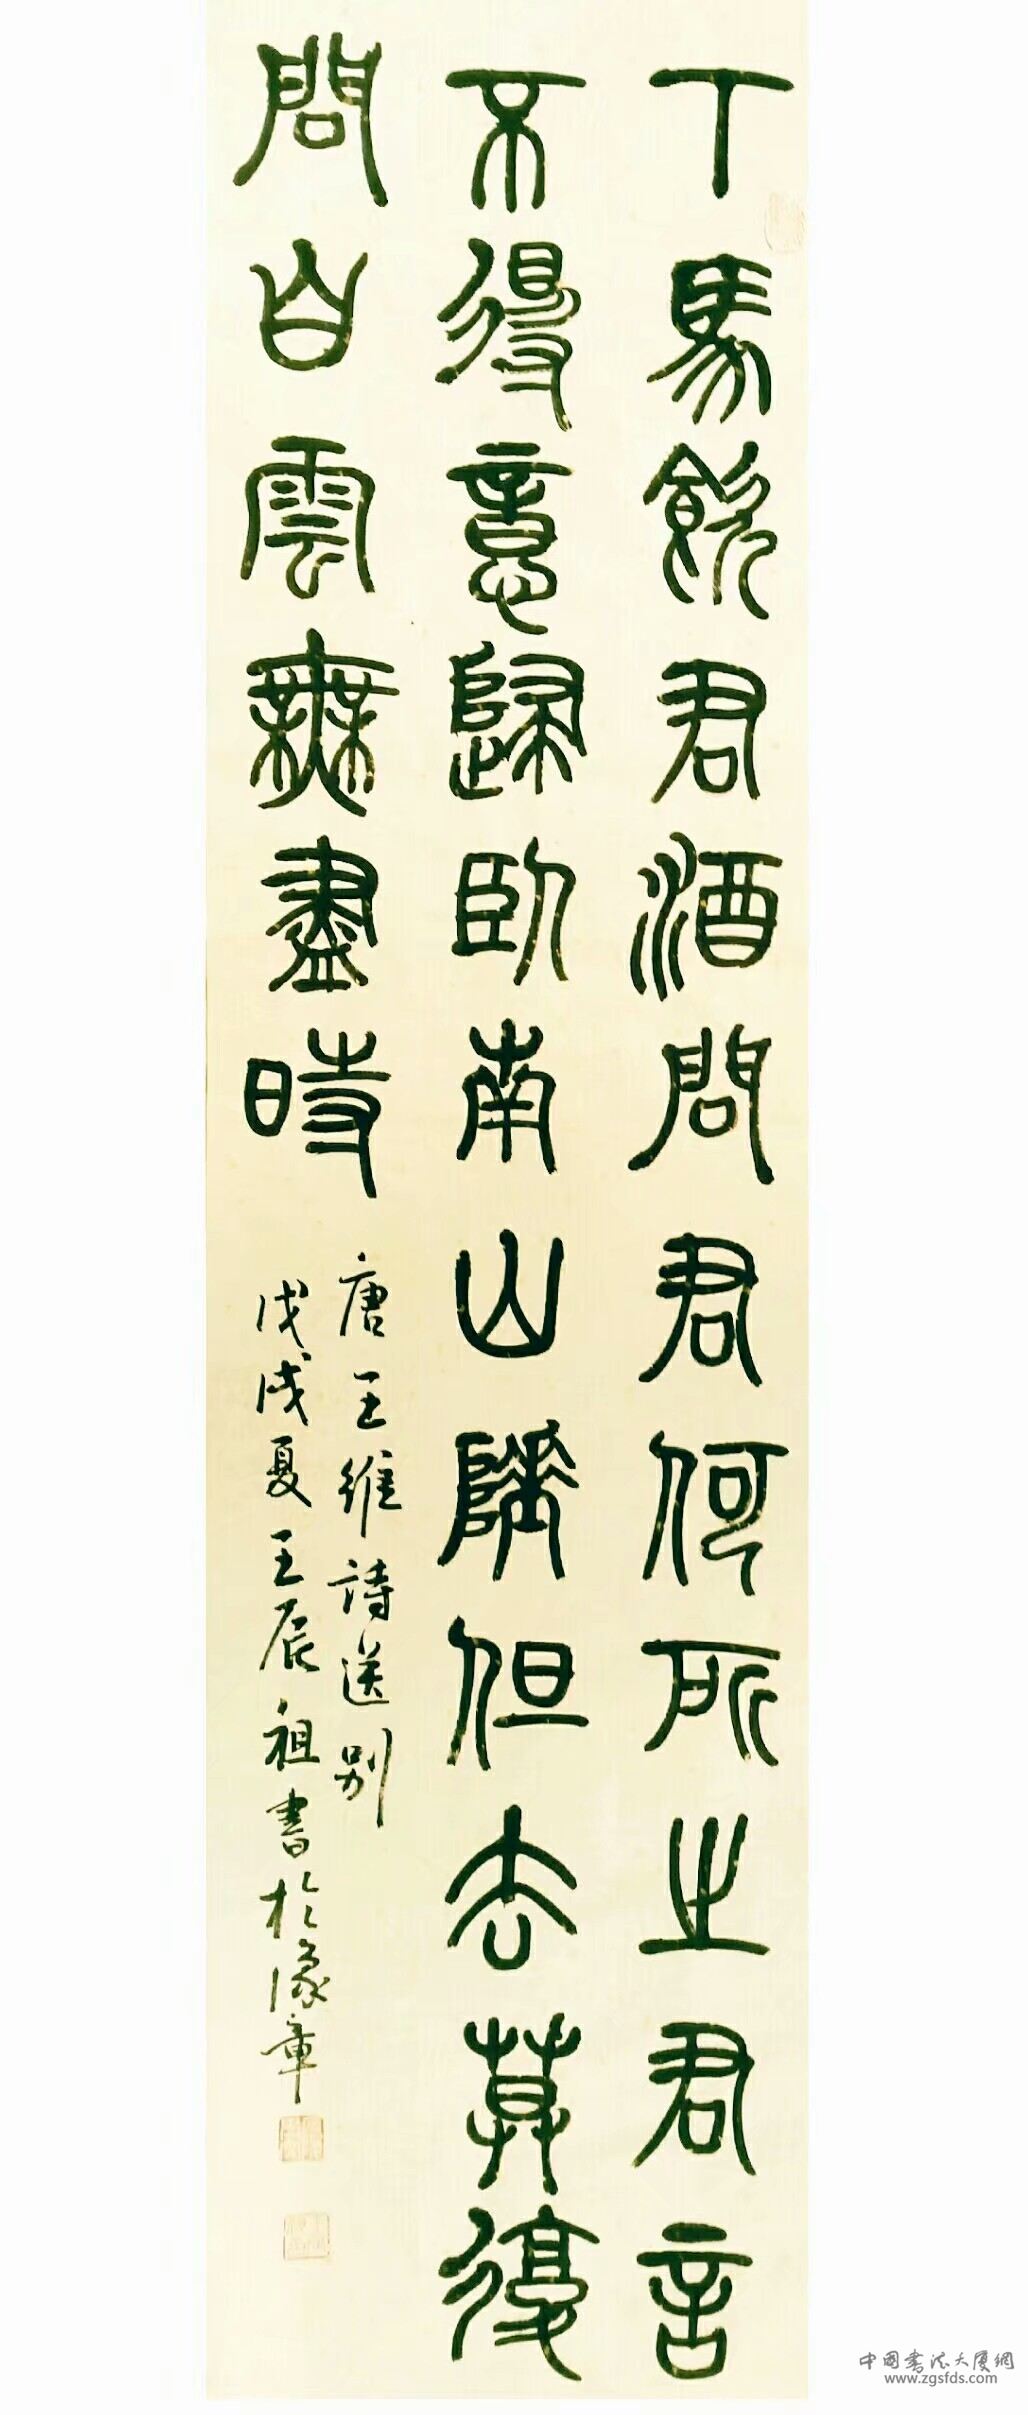 下馬飲君酒問君何所之君言
不得意歸臥南山陲但去莫復
問白雲無盡時
唐王維詩送別
戊戌夏王辰祖書於豫章
中國書法大厦網
www.zgsfds.com